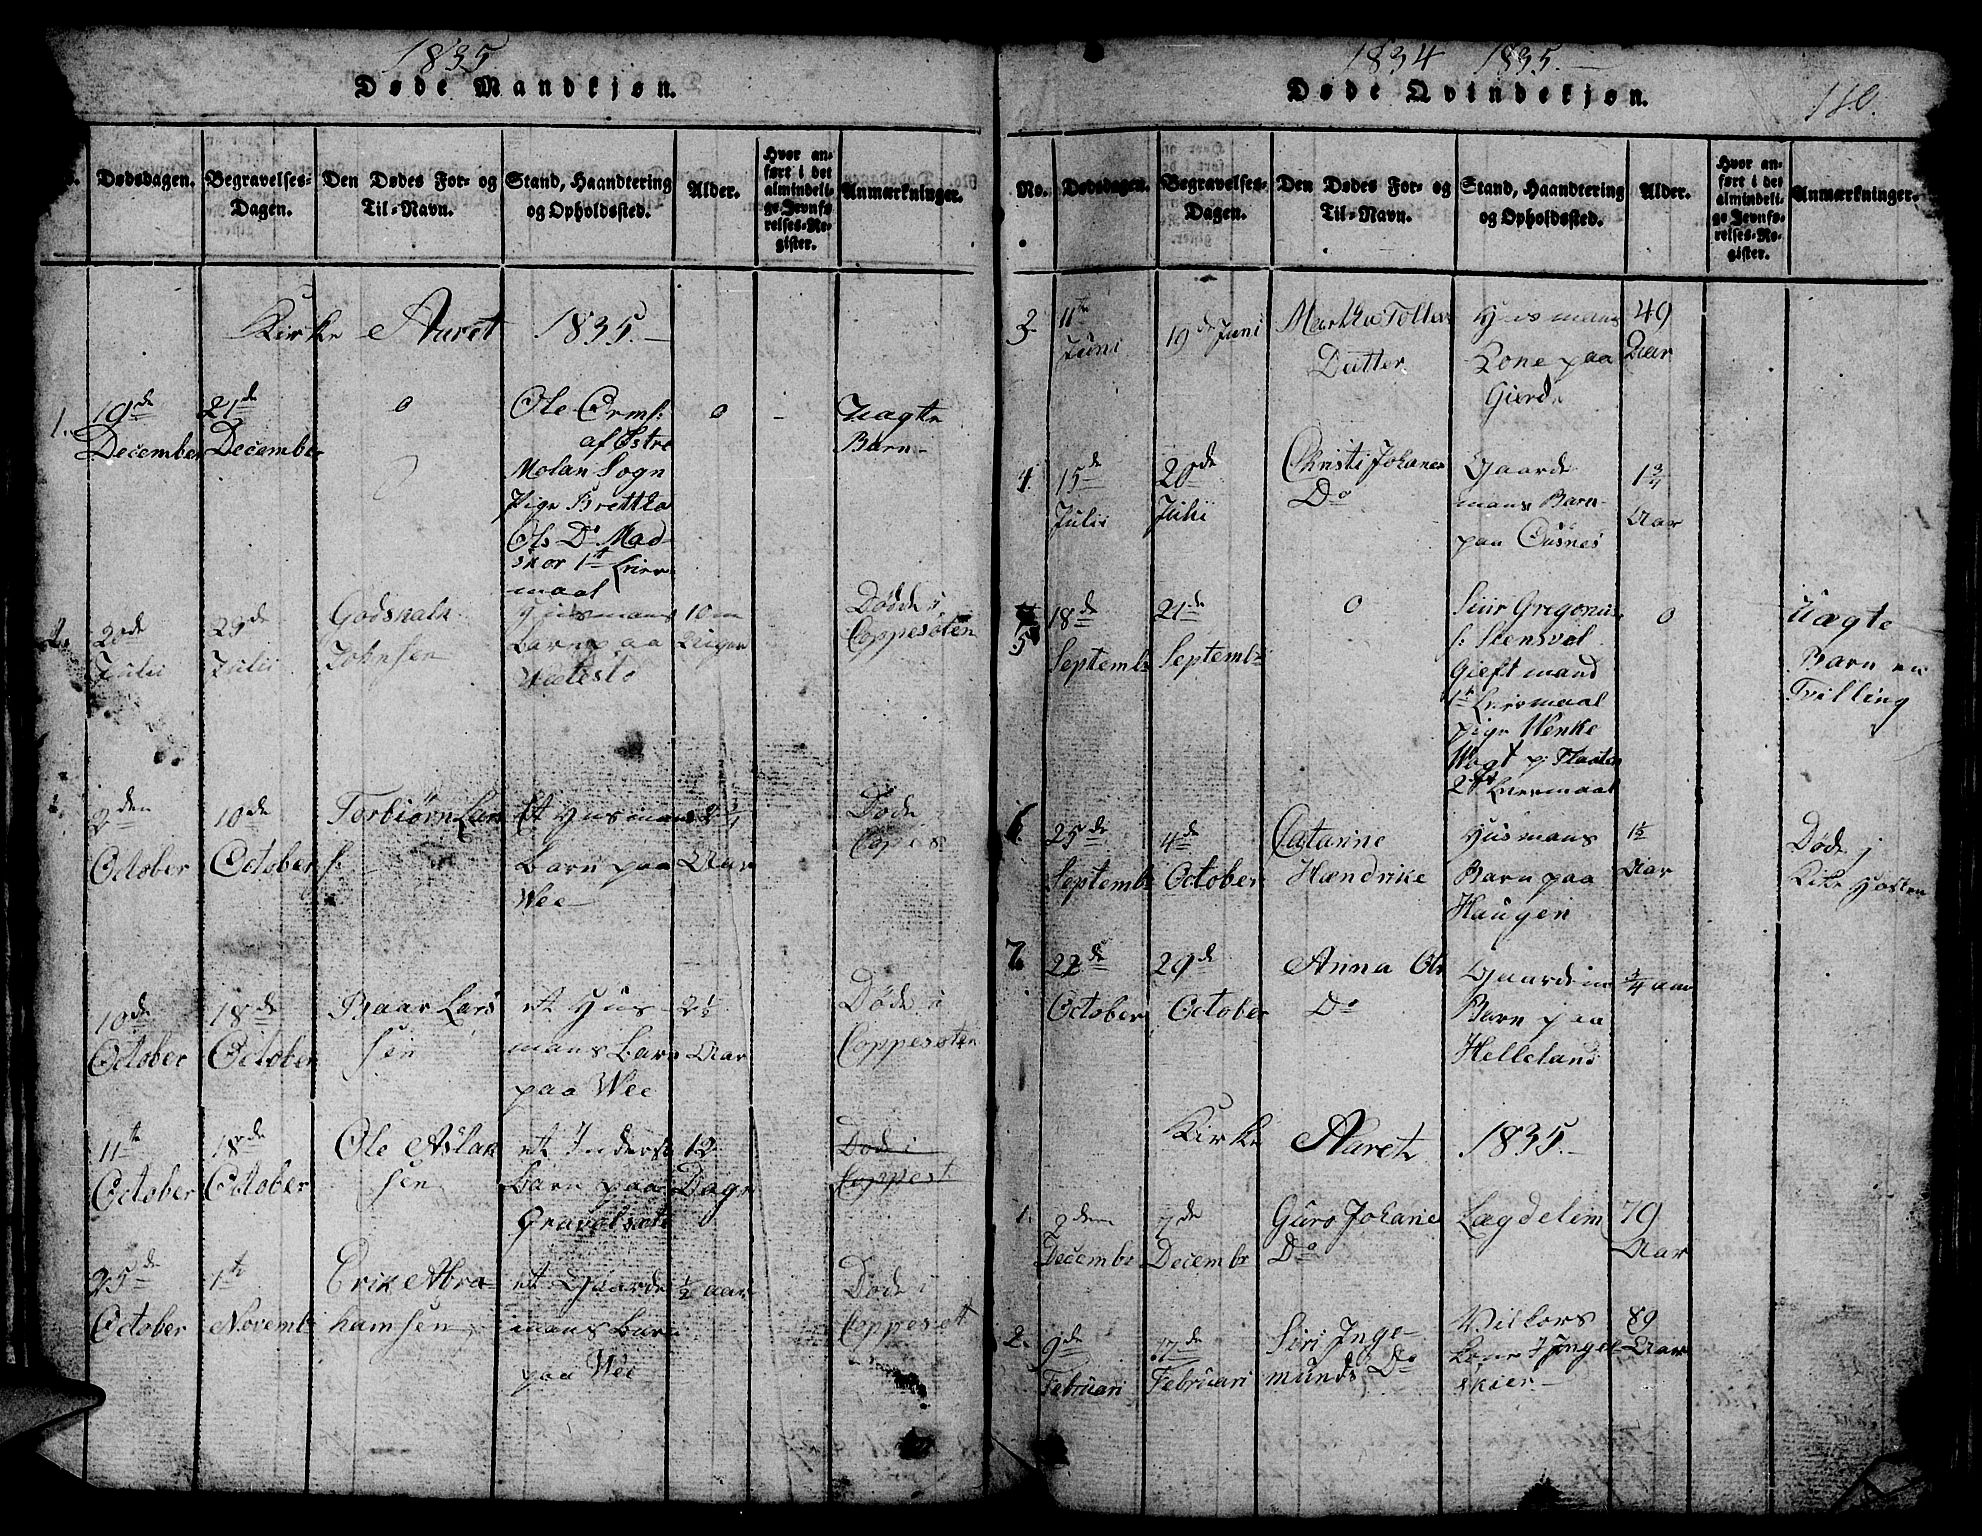 1835
Døde Mandkjøn.
Dødsdagen.
Begravelses-
Dagen.
Den Dødes For- og
Til-Navn.
Stand, Haandtering
og Opholdssted.
Alder.
Hvor an-
ført i det
almindeli-
ge Jevnfø-
relses-Re-
gister.
Anmærkninger.
Kirke Aaret 1835.
1. 19de
December
21de
December
0
Ole Orms:
af Østre
Molan Sogn
Pige Brettha
Ols Do Mad-
skor 1te Leier-
maal
0
Uægte
Barn
20de
Julii
29de
Julii
Godskalk
Johnsen
Huusmans
Barn paa
10
Uger
Døde i
Coppesoten
den
October
10de
October
Torbiørn Lars
s:
et Husmans
Barn paa
Wee
Aar
Døde
10de
October
18de
October
Baar Lars
sen
et Hus-
mans Barn
paa Wee
2½
Aar
Døde i
Coppesoten
11te
October
18de
October
Ole Aslak
sen
et Inderst
Barn paa
12
Dage
Døde i
Coppest
25de
October
1te
Novembr
Erik Abra-
hamsen
et Gaarde
mans Barn
paa Wee
½ aar
Døde i
Coppesot
1834 1835.
Døde Qvindekjøn.
180.
No.
Dødsdagen.
Begravelses-
Dagen.
Den Dødes For- og
Til-Navn.
Stand, Haandtering
og Opholdssted.
Alder.
Hvor an-
ført i det
almindeli-
ge Jevnfø-
relses-Re-
gister.
Anmærkninger.
3. 11te
Juni
19de Juni
Martha
Datter
Husmans
Kone paa
Gierde
49
Aar
4. 15de
Julii
20de
Julii
Christi Johanes
Do
Gaarde
mans Barn
paa
1¾
Aar
5 18de
Septembr
21de
Septembr
0
Siur Gregorius
s: Stensvol
Gieft mand
1te Leiermaal
pige Wenke
Wogt p: Flaaten
2det Leiermaal
0
Uægte
Barn en
Tvilling
6 25de
Septembr
4de
October
Catarine
Hændrike
Husmans
Barn paa
Haugen
Aar
Døde i
Kike Hosten
7. 22de
October
29de
October
Anna Ols
Do
Gaardm
Barn paa
Helleland
¾ aar
Kirke Aaret 1835.
1. 2den
Decembr
7de
Decembr
Guro Johane
Do
Lægdelem
79
Aar
2. 9de
Februari
17de
Februari
Siri Inge-
munds Do
Vilkors
Kone
89
Aar